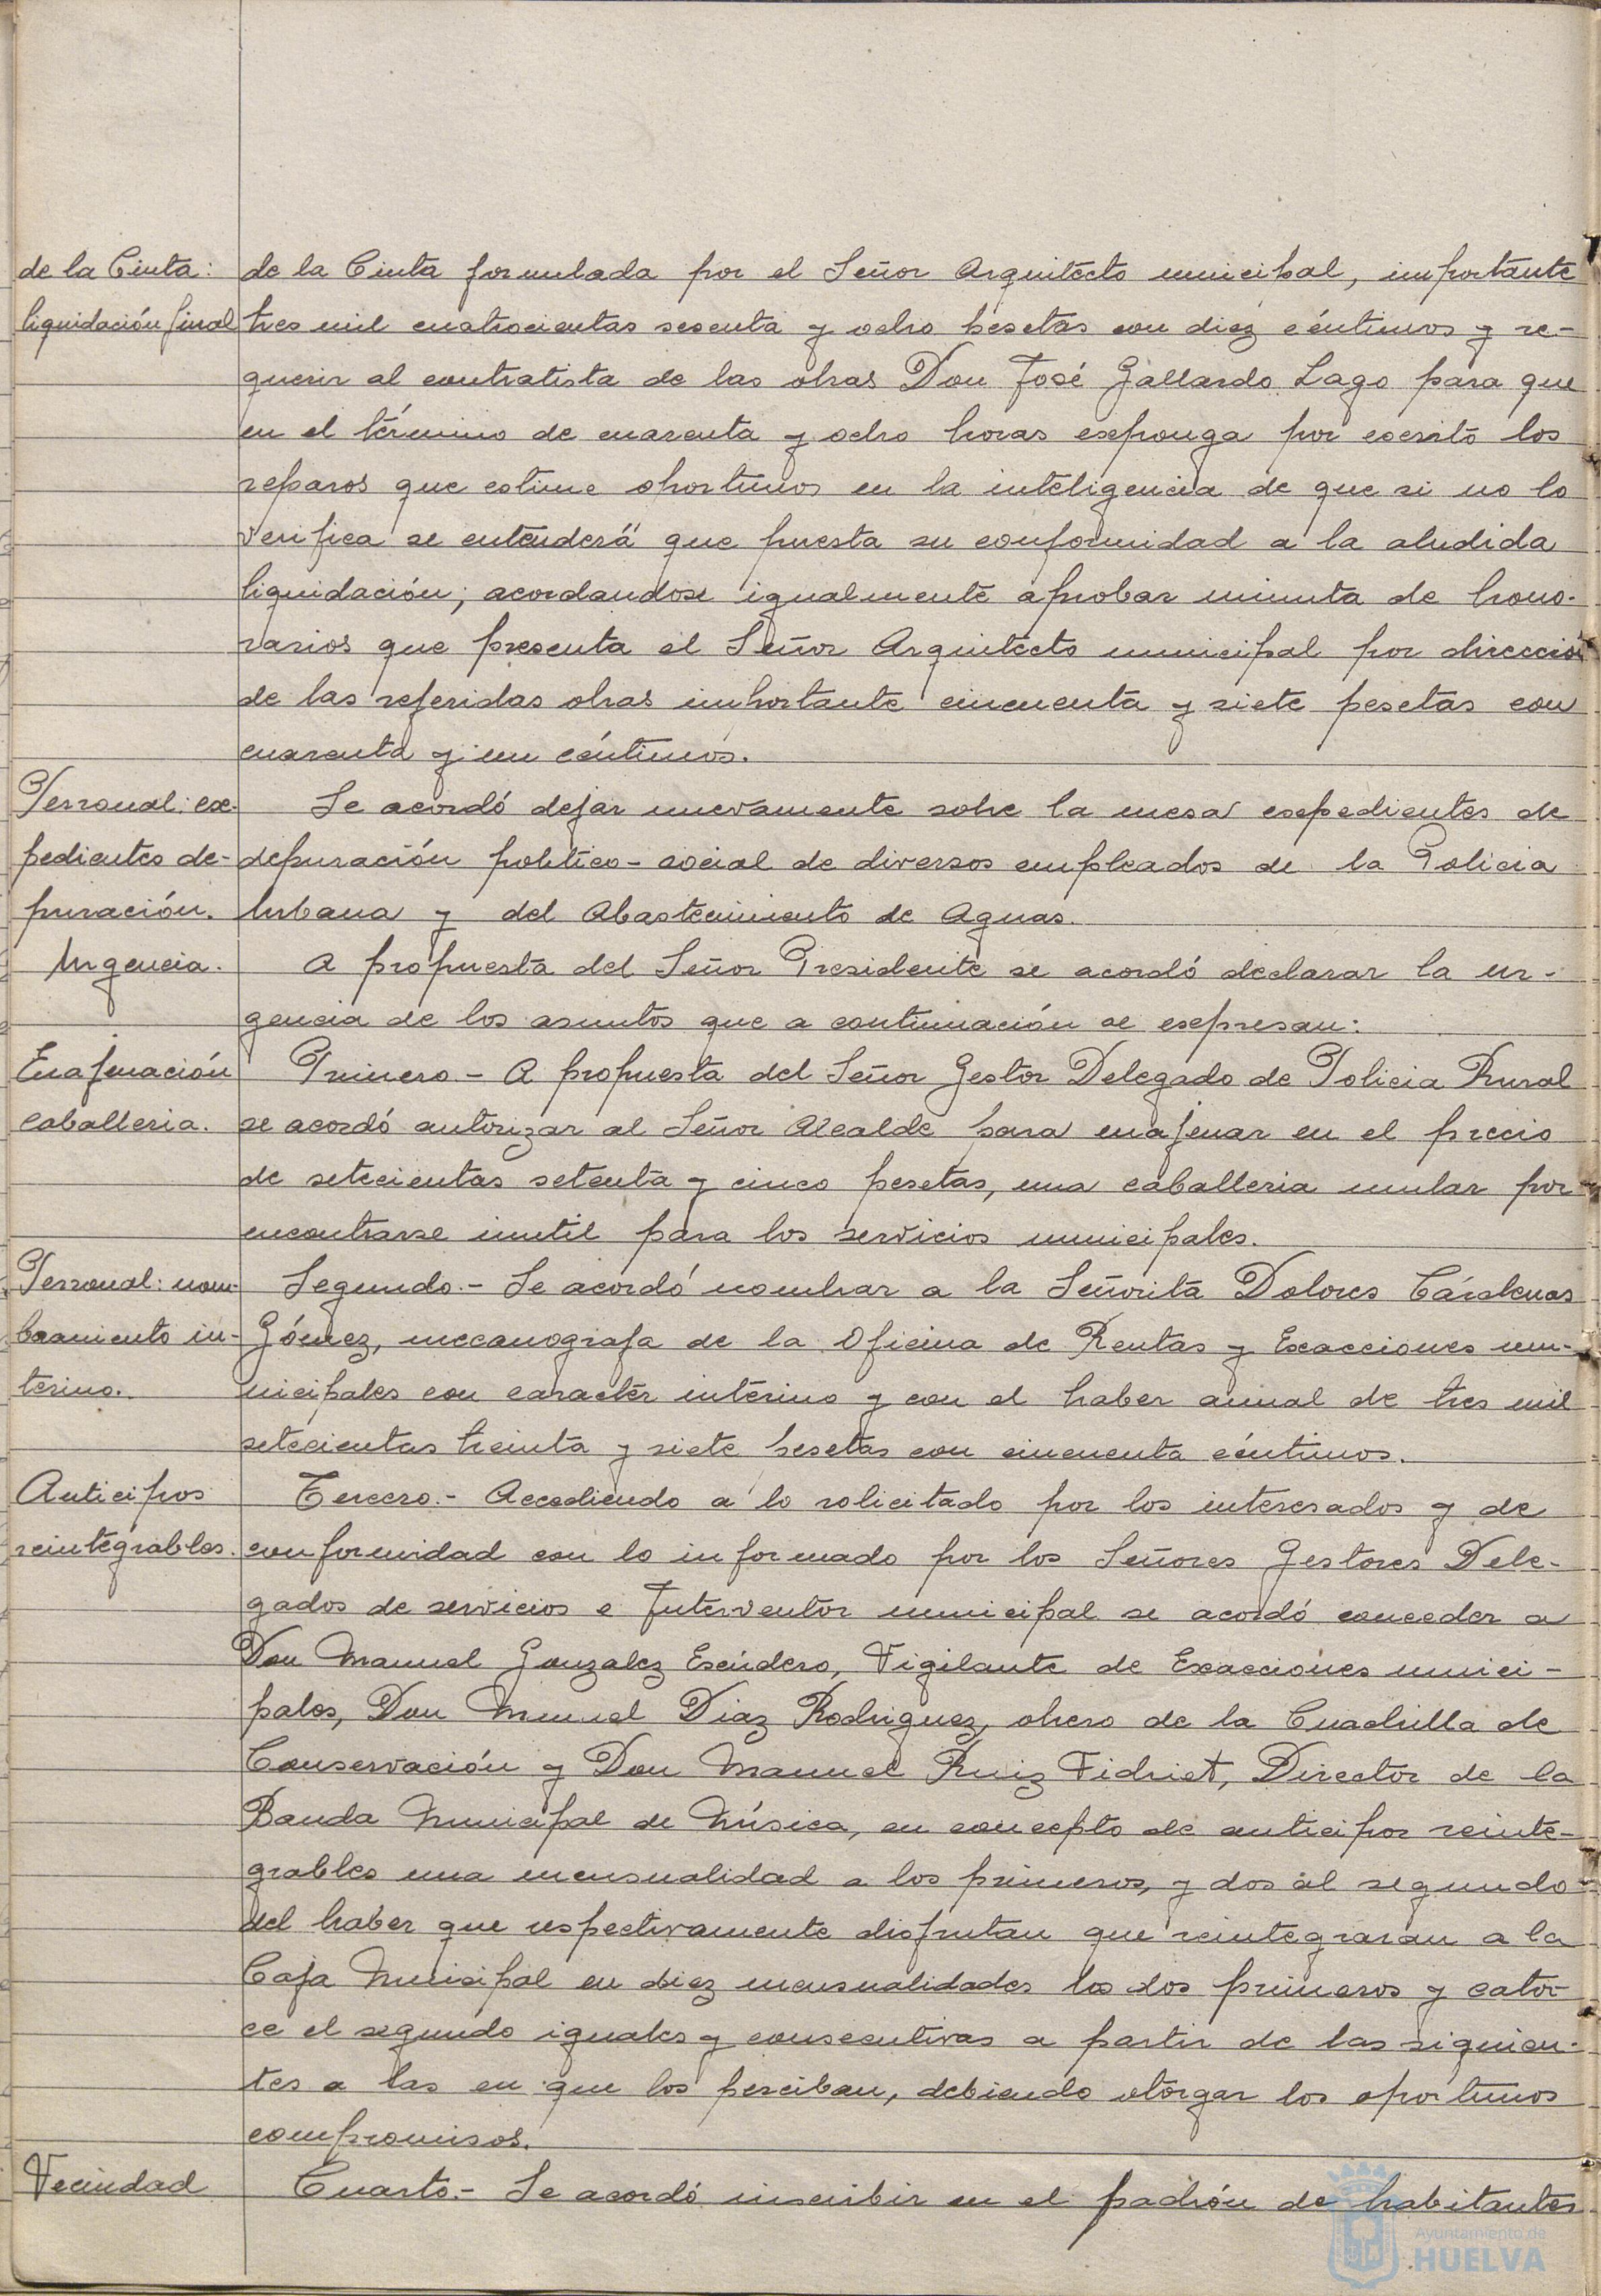 de la Cinta:
liquidación final
de la Cinta formulada por el Señor Arquitecto municipal, importante
tres mil cuatrocientas sesenta y ocho pesetas con diez céntimos y re-
querir al contratista de las obras Don José Gallardo Lago para que
en el término de cuarenta y ocho horas exponga por escrito los
reparos que estime oportunos en la inteligencia de que si no lo
verifica se entenderá que presta su conformidad a la aludida
liquidación; acordandose igualmente aprobar minuta de hono-
rarios que presenta el Señor Arquitecto municipal por direcció
de las referidas obras importante cincuenta y siete pesetas con
cuarenta y un céntimos.
Personal: ex-
pedientes de-
puración.
Se acordó dejar nuevamente sobre la mesa expedientes de
depuración politico-social de diversos empleados de la Policia
Urbana y del Abastecimiento de Aguas.
Urgencia.
A propuesta del Señor Presidente se acordó declarar la ur-
gencia de los asuntos que a continuación se expresan:
Enajenación
caballeria.
Primero.- A propuesta del Señor Gestor Delegado de Policia Rural
se acordó autorizar al Señor Alcalde para enajenar en el precio
de setecientas setenta y cinco pesetas, una caballeria mular por
encontrarse inutil para los servicios municipales.
Personal: nom-
bramiento in-
terino.
Segundo.- Se acordó nombrar a la Señorita Dolores Cárdenas
Gómez, mecanografa de la Oficina de Rentas y Exacciones mu-
nicipales con caracter interino y con el haber anual de tres mil
setecientas treinta y siete pesetas con cincuenta céntimos.
Anticipos
reintegrables.
Tercero.- Accediendo a lo solicitado por los interesados y de
conformidad con lo informado por los Señores Gestores Dele-
gados de servicios e Interventor municipal se acordó conceder a
Don Manuel Gonzalez Escudero, Vigilante de Exacciones munici-
pales, Don Manuel Diaz Rodriguez, obrero de la Cuadrilla de
Conservación y Don Manuel Ruiz Vidriet, Director de la
Banda Municipal de Música, en concepto de anticipos reinte-
grables una mensualidad a los primeros, y dos al segundo
del haber que respectivamente disfrutan que reintegraran a la
Caja Municipal en diez mensualidades los dos primeros y cator-
ce el segundo iguales y consecutivas a partir de las siguien-
tes a las en que los perciban, debiendo otorgar los oportunos
compromisos.
Vecindad
Cuarto.- Se acordó inscribir en el padrón de habitantes
Ayuntamiento de
HUELVA